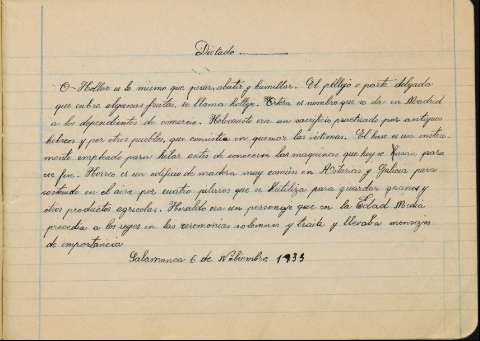 Dictado
O Hollar es lo mismo que pisar, abatir y humillar. El pellejo o parte delgada
que cubre algunas frutas, se llama hollejo. Hortera es nombre que se da en Madrid
a los dependientes de comercio. Holocausto era un sacrificio practicado por antiguos
hebreos y por otros pueblos, que consistia en quemar las victimas. El huso es un instru-
mento empleado para hilar antes de conocerse las maquinas que hoy se husan para
ese fin. Horreo es un edificio de madera muy común en Asturias y Galicia para
sostenido en el aire por cuatro pilares que se hutiliza para guardar granos y
otros productos agricolas. Heraldo era un personaje que en la Edad Media
precedia a los reyes en las ceremonias solemnes y y llevaba mensajes
de importancia
Salamanca 6 de Nobiembre 1933